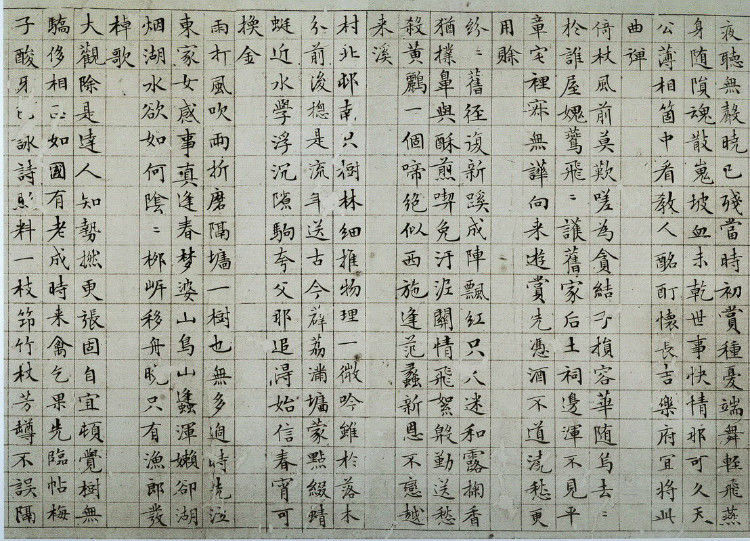 夜聽無聲曉已殘當時初賞種憂端舞輕飛燕
身隨隕魂散嵬坡血未乾世事快情那可久天
公薄相箇中看教人酩酊懷長吉樂府宜將此
曲彈
倚杖風前莫歎嗟為貪結子損容華隨烏去〻
於誰屋媿鷰飛〻護舊家后土祠邊渾不見平
章宅裡寂無譁向来遊賞先憑酒不道澆愁更
用賒
紛〻舊徑復新蹊成陣飄紅只人迷和露掬香
猶撲鼻與酥煎喫免汙泥關情飛絮殷勤送愁
殺黃鸝一個啼絕似西施逢范蠡新恩不戀越
来溪
村北邨南只樹林細推物理一微吟雖於落木
分前後總是流年送古今薜荔滿墻蒙點綴蜻
蜓近水學浮沉隙駒夸父那追得始信春宵可
換金
雨打風吹兩折磨隔墻一樹也無多過時先泣
東家女感事真逢春夢婆山鳥山蠭渾嬾卻湖
烟湖水欲如何陰〻柳岸移舟晚只有漁郎發
棹歌
大觀除是達人知勢撚更張固自宜頓覺樹無
驕侈相正如國有老成時来禽乞果先臨帖梅
子酸牙已詠詩料一枝笻竹杖芳罇不誤隔